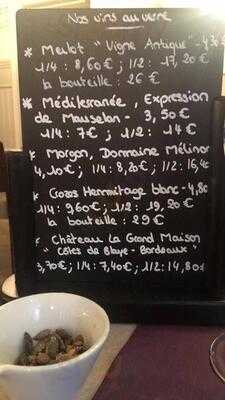 Nos vins au verre
* Merlot "Vigne Antique" - 4,30€
1/4 : 8,60€ ; 1/2 : 17,20€
la bouteille : 26€
* Méditerranée, Expression
de Mauselan - 3,50€
1/4 : 7€ ; 1/2 : 14€
* Morgon, Domaine Mélinon
4,10€ ; 1/4 : 8,20€ ; 1/2 : 16,4
* Crozes Hermitage blanc - 4,80
1/4 : 9,60€ ; 1/2 : 19,20€
la bouteille : 29€
* Château La Grand Maison
Côtes de Blaye - Bordeaux
3,70€ ; 1/4 : 7,40€ ; 1/2 : 14,80€